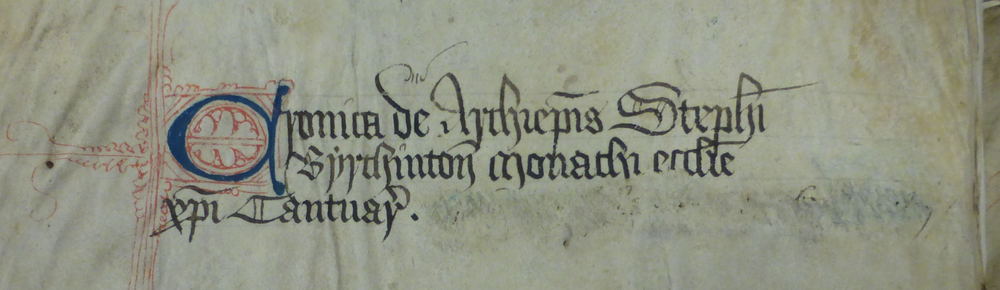 Cronica de Archiep̄is Steph̄i
Byrchintoñ monachi eccl̄ie
xp̄i Cantuar̉.